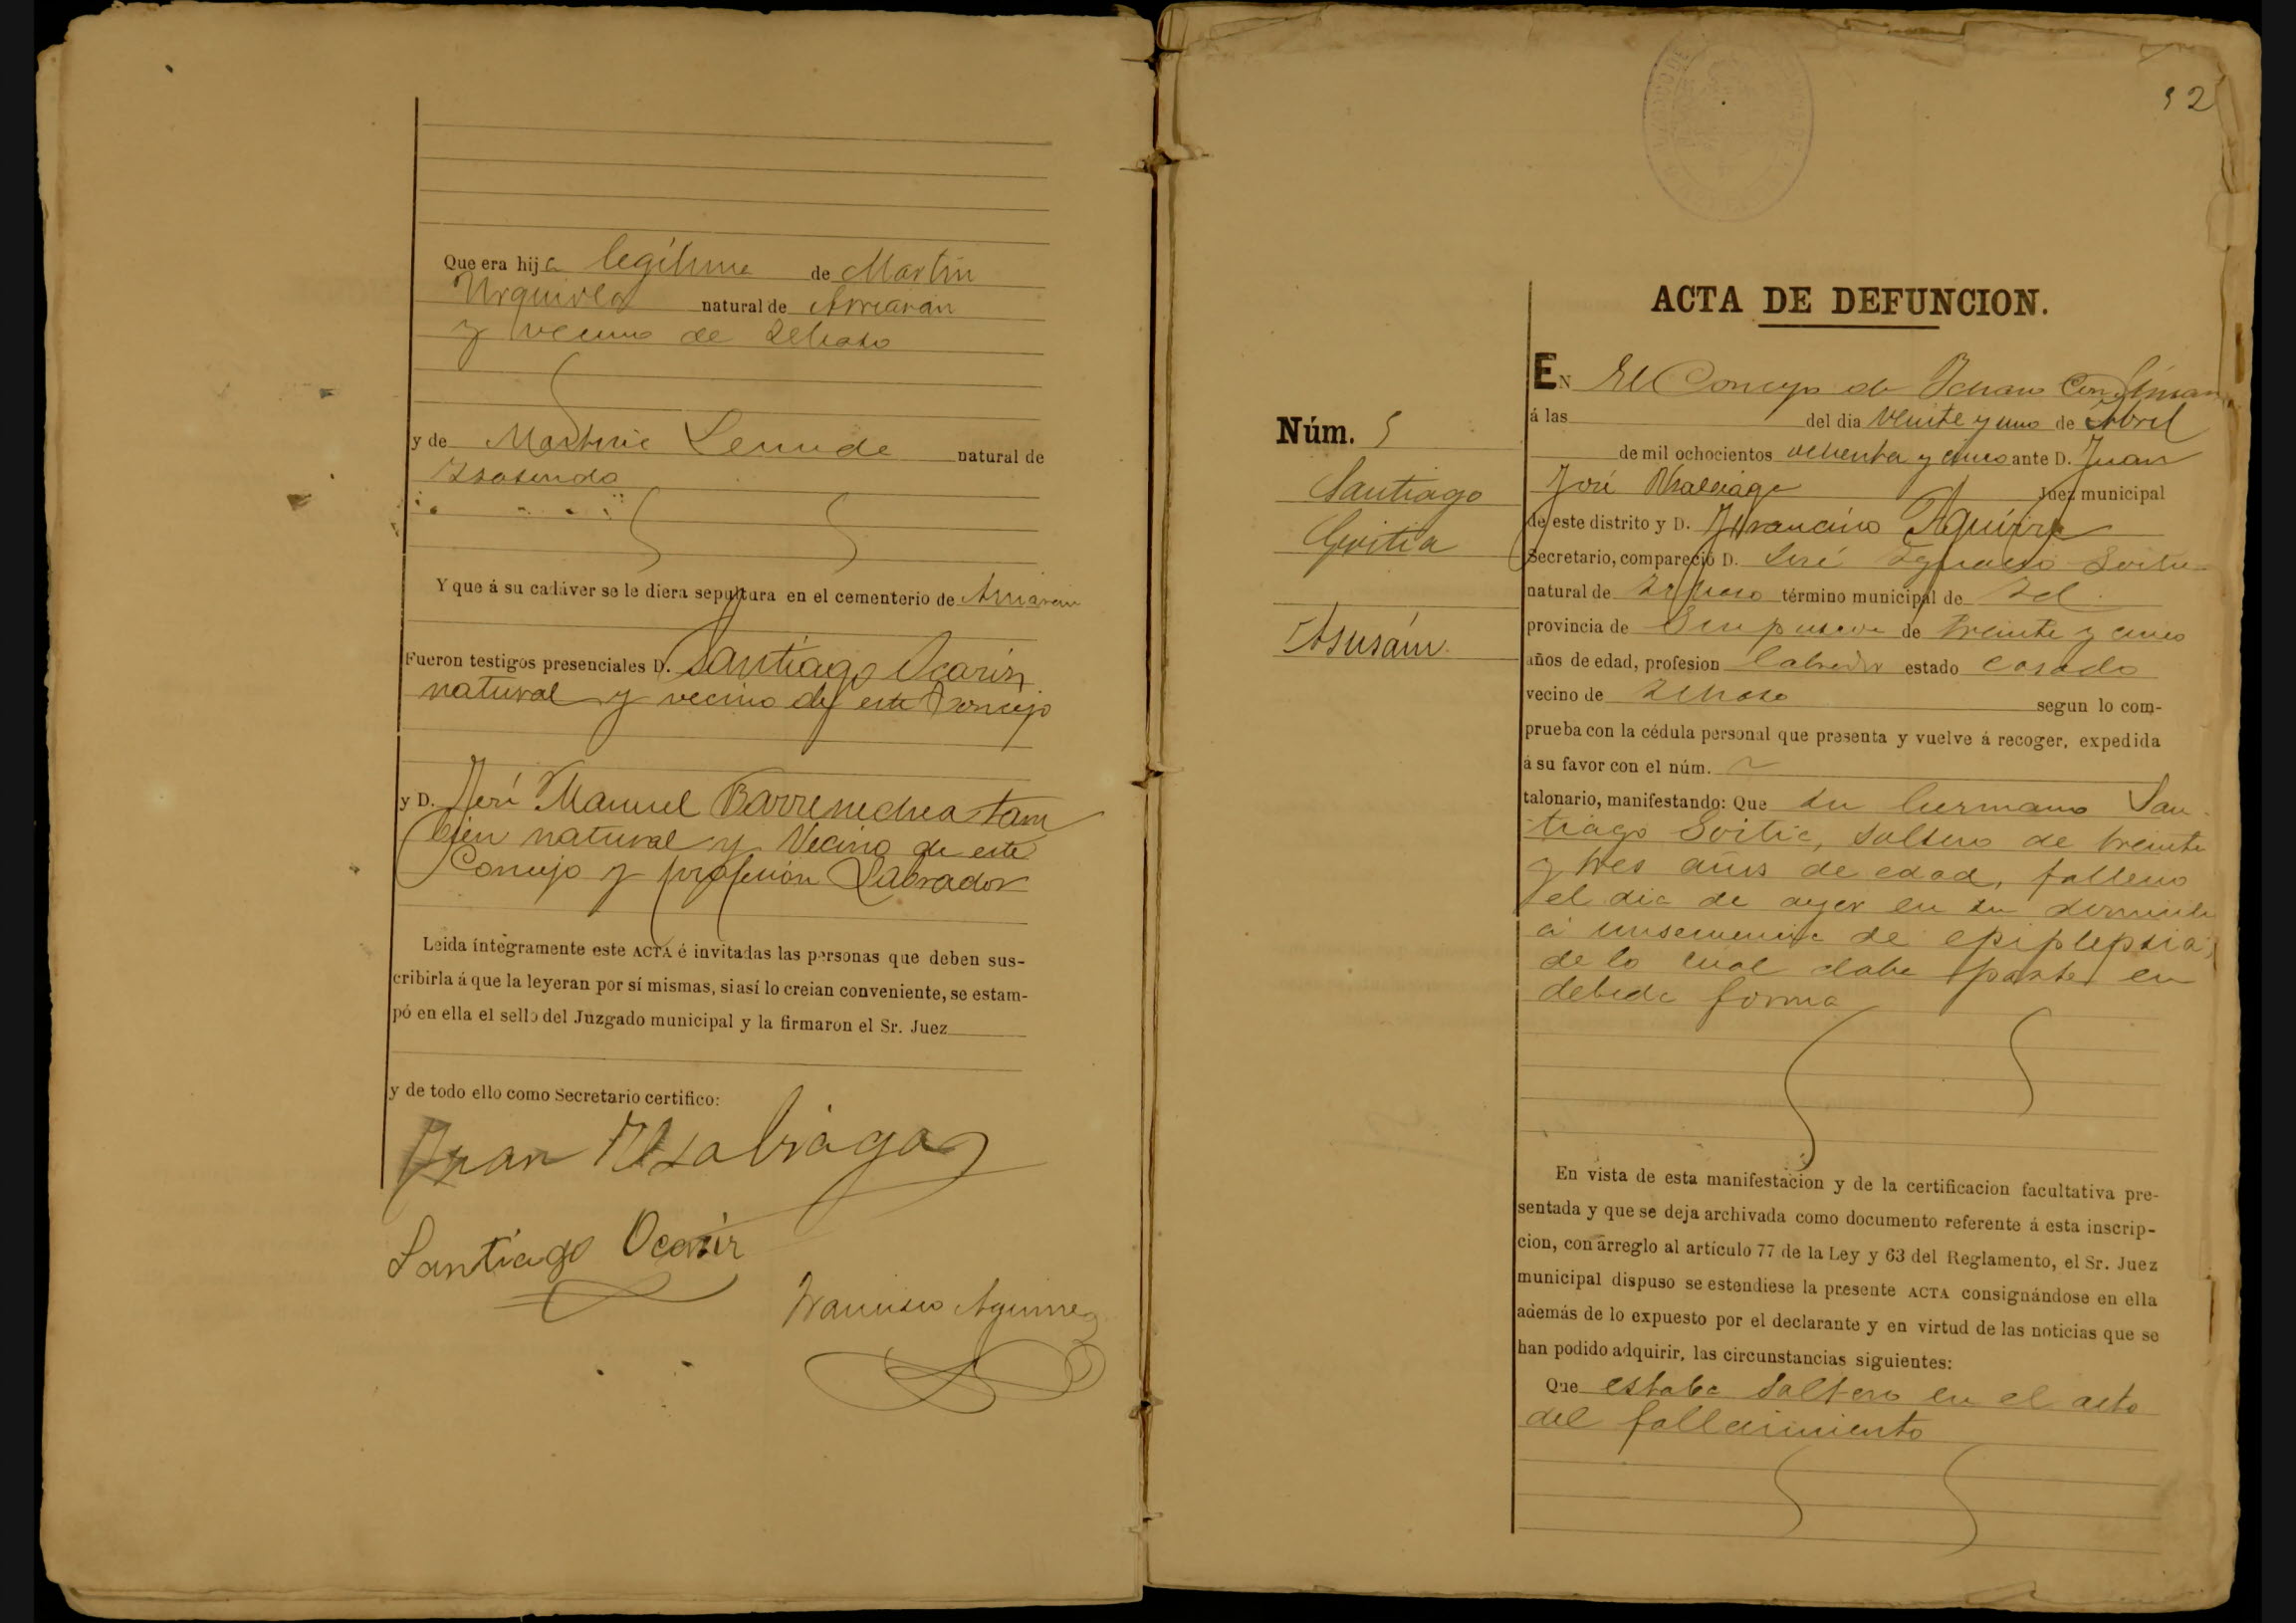 Que era hija legítima de Martín
Urquiola natural de Arriarán
y vecino de
y de Martina natural de
Y que á su cadáver se le diera sepultura en el cementerio de Arriarán
Fueron testigos presenciales D. Santiago Ocariz
natural y vecino de este Concejo
y D. José Manuel Barrenechea tam
bien natural y Vecino de este
Concejo y profesión Labrador
Leida íntegramente este ACTA é invitadas las personas que deben sus-
cribirla á que la leyeran por sí mismas, si así lo creian conveniente, se estam-
pó en ella el sello del Juzgado municipal y la firmaron el Sr. Juez
y de todo ello como Secretario certifico:
Juan Usabiaga
Santiago Ocariz
Francisco Aguirre
52
ACTA DE DEFUNCION.
EN El Concejo de
á las del dia veinte y uno de Abril
de mil ochocientos ochenta y cinco ante D. Juan
José Usabiaga Juez municipal
de este distrito y D. Francisco Aguirre
Secretario, compareció D. José Ignacio
natural de término municipal de Id
provincia de Guipuzcoa de treinta y cinco
años de edad, profesion labrador estado casado
vecino de segun lo com-
prueba con la cédula personal que presenta y vuelve á recoger, expedida
á su favor con el núm.
talonario, manifestando: Que su hermano San
tiago Goitia, soltero de treinta
y tres años de edad, falleció
el dia de ayer en su domicilio
á consecuencia de epiplepsia
de lo cual daba parte en
debida forma
En vista de esta manifestacion y de la certificacion facultativa pre-
sentada y que se deja archivada como documento referente á esta inscrip-
cion, con arreglo al artículo 77 de la Ley y 63 del Reglamento, el Sr. Juez
municipal dispuso se estendiese la presente ACTA consignándose en ella
además de lo expuesto por el declarante y en virtud de las noticias que se
han podido adquirir, las circunstancias siguientes:
Que estaba soltero en el acto
del fallecimiento
Núm. 5
Santiago
Goitia